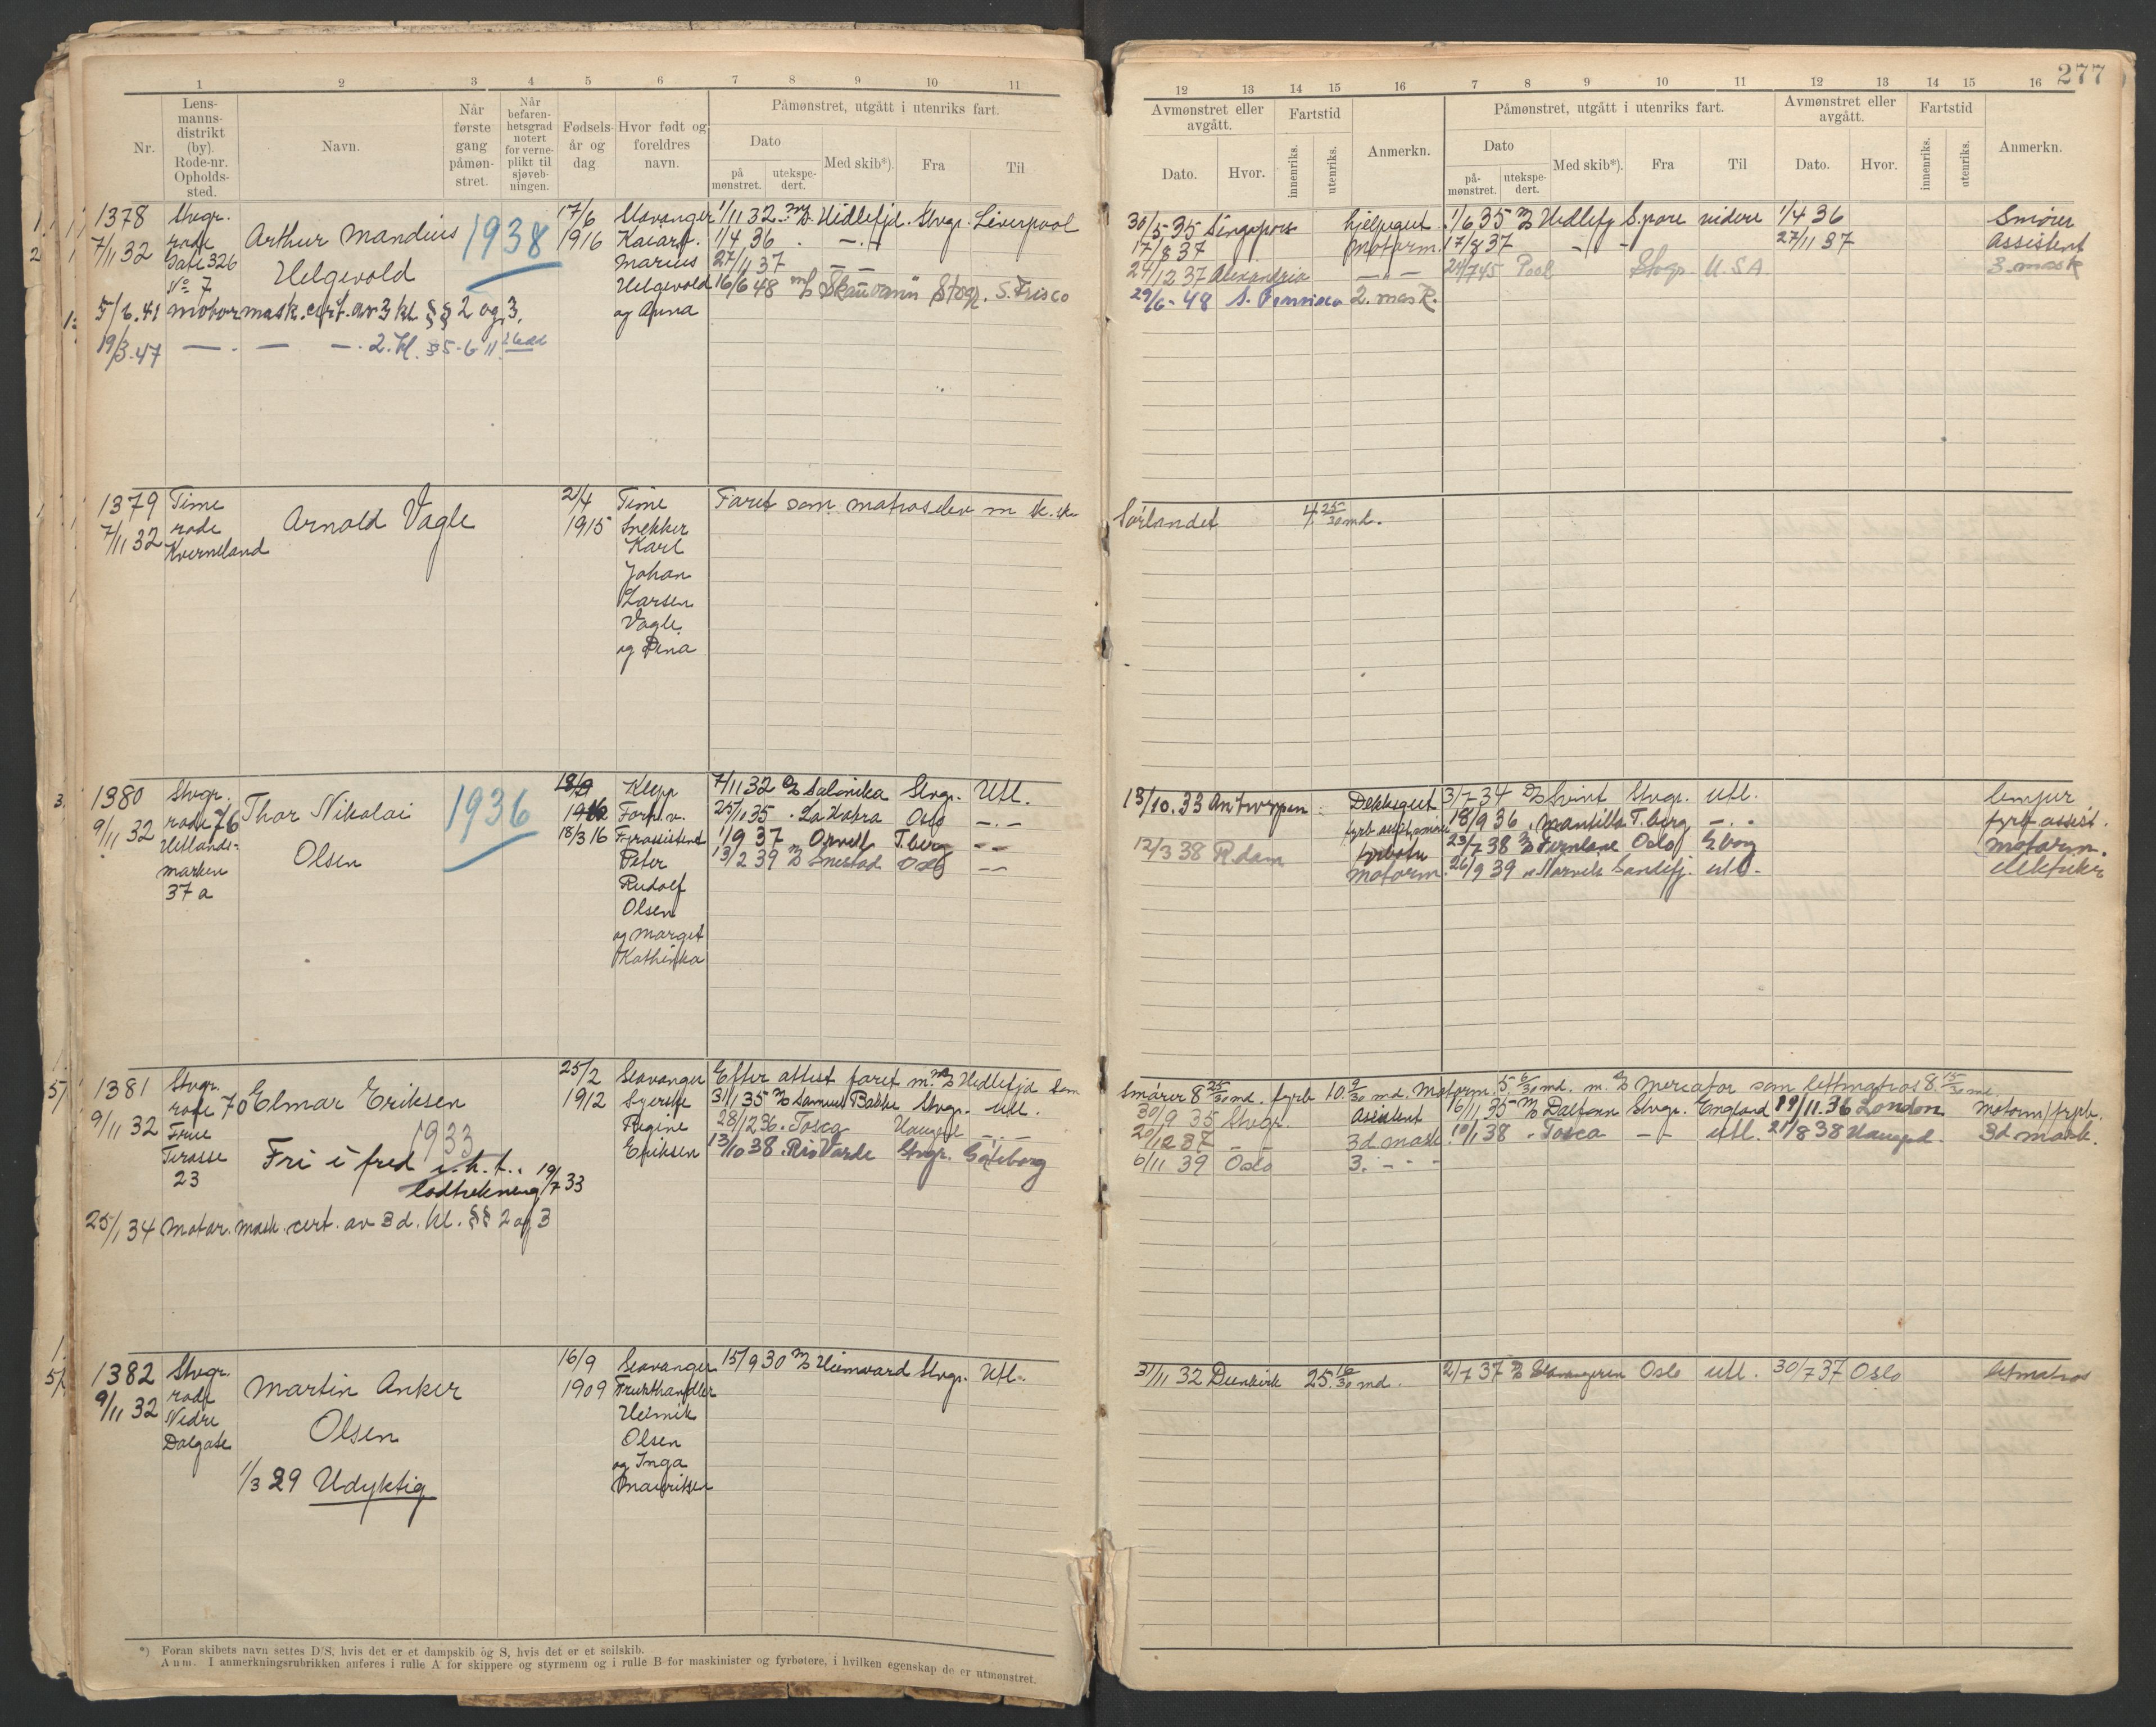 277
1 2 3 4 5 6 7 8 9 10 11
Nr.
Lens-
manns-
distrikt
(by).
Rode-nr.
Opholds-
sted.
Navn.
Når
første
gang
påmøn-
stret.
Når
befaren-
hetsgrad
notert
for verne-
plikt til
sjøveb-
ningen.
Fødsels-
år og
dag
Hvor født og
foreldres
navn.
Påmønstret, utgått i utenriks fart.
Dato
på
mønstret.
utekspe-
dert.
Med skib*).
Fra
Til
12 13 14 15 16 7 8 9 10 11 12 13 14 15 16
Avmønstret eller
avgått.
Dato.
Hvor.
Fartstid
innenriks.
utenriks.
Anmerkn.
Påmønstret, utgått i utenriks fart.
Dato
på-
mønstret.
utekspe-
dert.
Med skib*).
Fra
Til
Avmønstret eller
avgått.
Dato.
Hvor.
Fartstid
innenriks.
utenriks.
Anmerkn.
1378
7/11 32
Stvgr.
rode
Gate 326
No 7
Arthur Mandius
Helgevold
1938
17/6
1916
Stavanger
Kaiarb.
Marius
Helgevold
og Anna
1/11 32 M/S Hidlefjd. Stvgr. Liverpool
1/4 36 - - -
27/11 37 - -
16/6 48 M/S Skauvann Stvgr. S. Frisco
5/6.41 motormask. cert. av 3 kl. §§ 2 og 3.
19/3.47 - - - 2. kl. § 5-6 11
30/5-35 Singapore hjelpegut 1/6 35 M/S Hidlefj. S.pore videre 1/4 36 Smører
17/8 37 Motorm. 17/8 37 - - 27/11 37 Assistent
24/12 37 Alexandria - - 24/7 45 Pool Stvgr. U.S.A. 3. mask
29/6-48 S. Francisco 2. mask.
1379
7/11 32
Time
rode
Kverneland
Arnold Vagle
21/4
1915
Time
Snekker
Karl
Johan
Larsen
Vagle
og Dina
Faret som matroselev m sk. sk.
Sørlandet 4 25/30 md.
1380
9/11 32
Stvgr.
rode 76
Hetlands-
marken
37 a
Thor Nikolai
Olsen
1936
18/3 16
Klepp
Forh. v.
Fyrassistent
Peter
Rudolf
Olsen
og Marget
Kathinka
7/11 32 D/S Salonika Stvgr. Utl.
25/11 35 - La Habra Oslo - . -
1/9 37 Orwell T.berg - -
13/2 39 M/S Snestad Oslo - -
13/10.33 Antwerpen Dekksgut 3/7 34 D/S Svint Stvgr. utl. lemper
18/9 36 . Mantilla T.berg - . - fyrb assist.
12/3 38 R.dam fyrbøter 23/7 38 M/S Fernlane Oslo G.borg motorm.
motorm. 26/9 39 Marvik Sandefj. utl. elektriker
1381
9/11 32
Stvgr.
rode 70
Frue
Terasse
23
Elmar Eriksen
1933
Fri i fred e. h. t.
lodtrekning 19/7 33
25/2
1912
Stavanger
Syerske
Regine
Eriksen
Efter attest faret m. M/S Hidlefjd som
31/1 35 M/S Samuel Bakke Stvgr. utl.
28/12 36 . Tosca Haugesd. - . -
13/10 38 . Rio Varde Stvgr. Göteborg
25/1 34 Motor. mask. cert. av 3d. kl. §§ 2 og 3
smører 8 25/30 md. fyrb 10 9/30 md. Motorm. 5 6/30 md. m. M/S Mercator som lettmatros 8 15/30 md.
30/9 35 Stvgr. Assistent 16/11 35 M/S Dalfonn Stvgr. England 19/11.36 London Motorm/fyrb.
20/12 37 - - 3d mask 10/1 38 . Tosca - - utl. 21/8 38 Haugesd. 3d mask.
6/11 39 Oslo 3. - -
1382
9/11 32
Stvgr.
rode
Nedre
Dalgate
Martin Anker
Olsen
1/3 29 Udyktig
16/9
1909
Stavanger
Frukthandler
Heinrik
Olsen
og Inga
Mauritsen
15/9 30 M/S Heimvard Stvgr. Utl.
31/11 32 Dunkirk 25 16/30 md. 2/7 37 D/S Stavangeren Oslo utl. 30/7 37 Oslo letmatros
*) Foran skibets navn settes D/S, hvis det er et dampskib og S, hvis det er et seilskib.
Anm. I anmerkningsrubrikken anføres i rulle A for skippere og styrmenn og i rulle B for maskinister og fyrbøtere, i hvilken egenskap de er utmønstret.